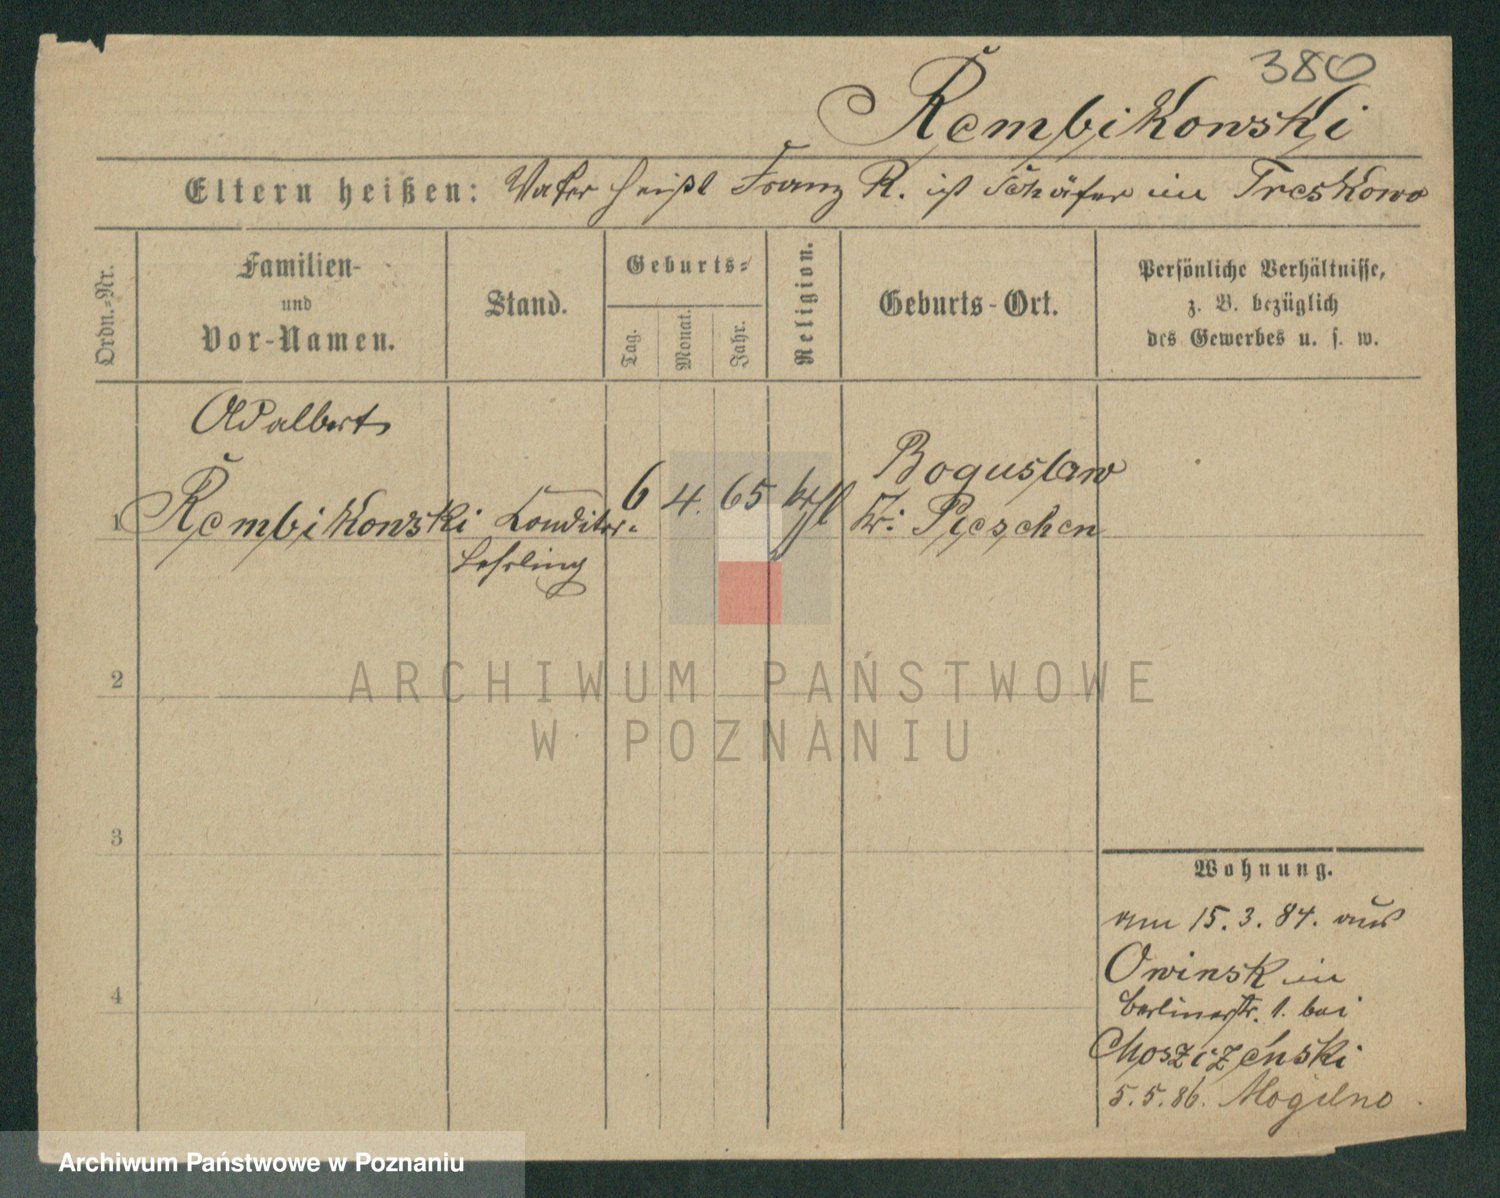 380
Rembikowski
Eltern heißen: Vater heißt Franz R. ist Schäfer in Treskowo
Ordn.-Nr.
Familien-
und
Vor-Namen.
Stand.
Geburts-
Tag.
Monat.
Jahr.
Religion.
Geburts-Ort.
Persönliche Verhältnisse,
z. B. bezüglich
des Gewerbes u. s. w.
Adalbert
1 Rembikowski Conditor- 6 4. 65 kth Boguslaw
Lehrling Kr. Pleschen
2
3
4
Wohnung.
am 15. 3. 84. aus
Owinsk in
Berlinerstr. 1. bei
5. 5. 86. Mogilno.
ARCHIWUM PAŃSTWOWE
W POZNANIU
Archiwum Państwowe w Poznaniu